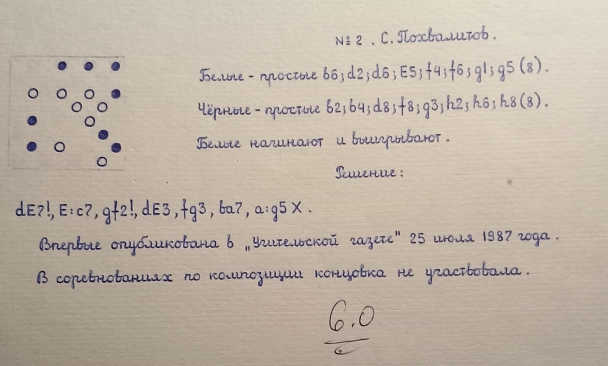 № 2. С. Похвалитов.
Белые - простые b6; d2; d6; E5; f4; f6; g1; g5 (8).
Чёрные - простые b2; b4; d8; f8; g3; h2; h6; h8 (8).
Белые начинают и выигрывают.
Решение:
dE7!, E:c7, gf2!, dE3, fg3, ba7, a:g5 X.
Впервые опубликована в „Учительской газете" 25 июля 1987 года.
В соревнованиях по композиции концовка не участвовала.
6.0